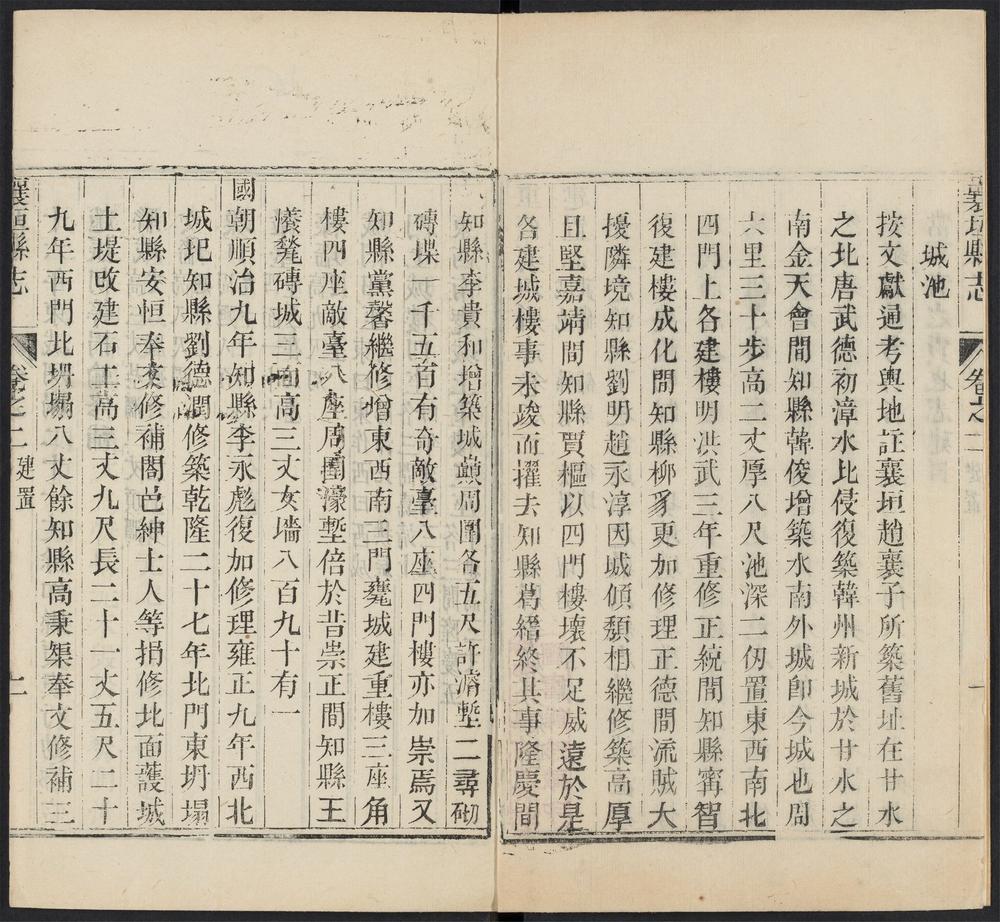 襄垣縣志
卷之二
一
城池
按文獻通考輿地註襄垣趙襄子所築舊址在甘水
之北唐武德初漳水北侵復築韓州新城於甘水之
南金天會間知縣韓俊增築水南外城卽今城也周
六里三十步高二丈厚八尺池深二仞置東西南北
四門上各建樓明洪武三年重修正統間知縣甯智
復建樓成化間知縣柳豸更加修理正德間流賊大
擾隣境知縣劉明趙永淳因城傾頹相繼修築高厚
且堅嘉靖間知縣賈樞以四門樓壞不足威遠於是
各建城樓事未竣而擢去知縣葛縉終其事隆慶間
知縣李貴和增築城巔周圍各五尺許濬塹二尋砌
磚堞一千五百有奇敵臺八座四門樓亦加崇焉又
知縣黨馨繼修增東西南三門甕城建重樓三座角
樓四座敵臺八座周圍濠塹倍於昔崇正間知縣王
甃磚城三面高三丈女墻八百九十有一
國朝順治九年知縣李永彪復加修理雍正九年西北
城圮知縣劉德潤修築乾隆二十七年北門東坍塌
知縣安恒奉文修補閤邑紳士人等捐修北面護城
土堤改建石工高三丈九尺長二十一丈五尺二十
九年西門北坍塌八丈餘知縣高秉榘奉文修補三
襄垣縣志
卷之二
建置